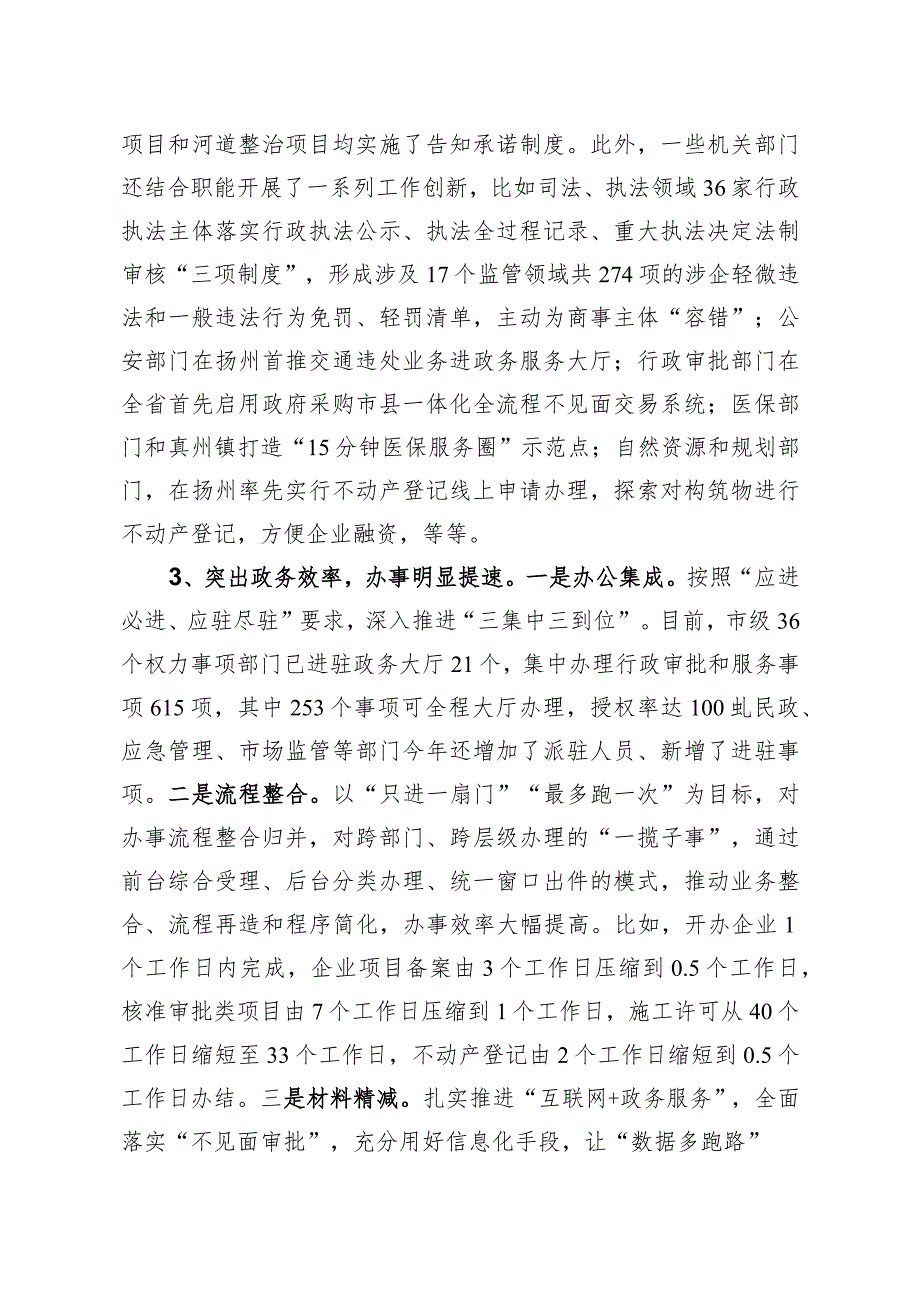 项目和河道整治项目均实施了告知承诺制度。此外，一些机关部门
还结合职能开展了一系列工作创新，比如司法、执法领域 36 家行政
执法主体落实行政执法公示、执法全过程记录、重大执法决定法制
审核“三项制度”，形成涉及 17 个监管领域共 274 项的涉企轻微违
法和一般违法行为免罚、轻罚清单，主动为商事主体“容错”；公
安部门在扬州首推交通违处业务进政务服务大厅；行政审批部门在
全省首先启用政府采购市县一体化全流程不见面交易系统；医保部
门和真州镇打造“15 分钟医保服务圈”示范点；自然资源和规划部
门，在扬州率先实行不动产登记线上申请办理，探索对构筑物进行
不动产登记，方便企业融资，等等。
3、突出政务效率，办事明显提速。一是办公集成。按照“应进
必进、应驻尽驻”要求，深入推进“三集中三到位”。目前，市级 36
个权力事项部门已进驻政务大厅 21 个，集中办理行政审批和服务事
项 615 项，其中 253 个事项可全程大厅办理，授权率达 100 虬民政、
应急管理、市场监管等部门今年还增加了派驻人员、新增了进驻事
项。二是流程整合。以“只进一扇门”“最多跑一次”为目标，对
办事流程整合归并，对跨部门、跨层级办理的“一揽子事”，通过
前台综合受理、后台分类办理、统一窗口出件的模式，推动业务整
合、流程再造和程序简化，办事效率大幅提高。比如，开办企业 1
个工作日内完成，企业项目备案由 3 个工作日压缩到 0.5 个工作日，
核准审批类项目由 7 个工作日压缩到 1 个工作日，施工许可从 40 个
工作日缩短至 33 个工作日，不动产登记由 2 个工作日缩短到 0.5 个
工作日办结。三是材料精减。扎实推进“互联网+政务服务”，全面
落实“不见面审批”，充分用好信息化手段，让“数据多跑路”